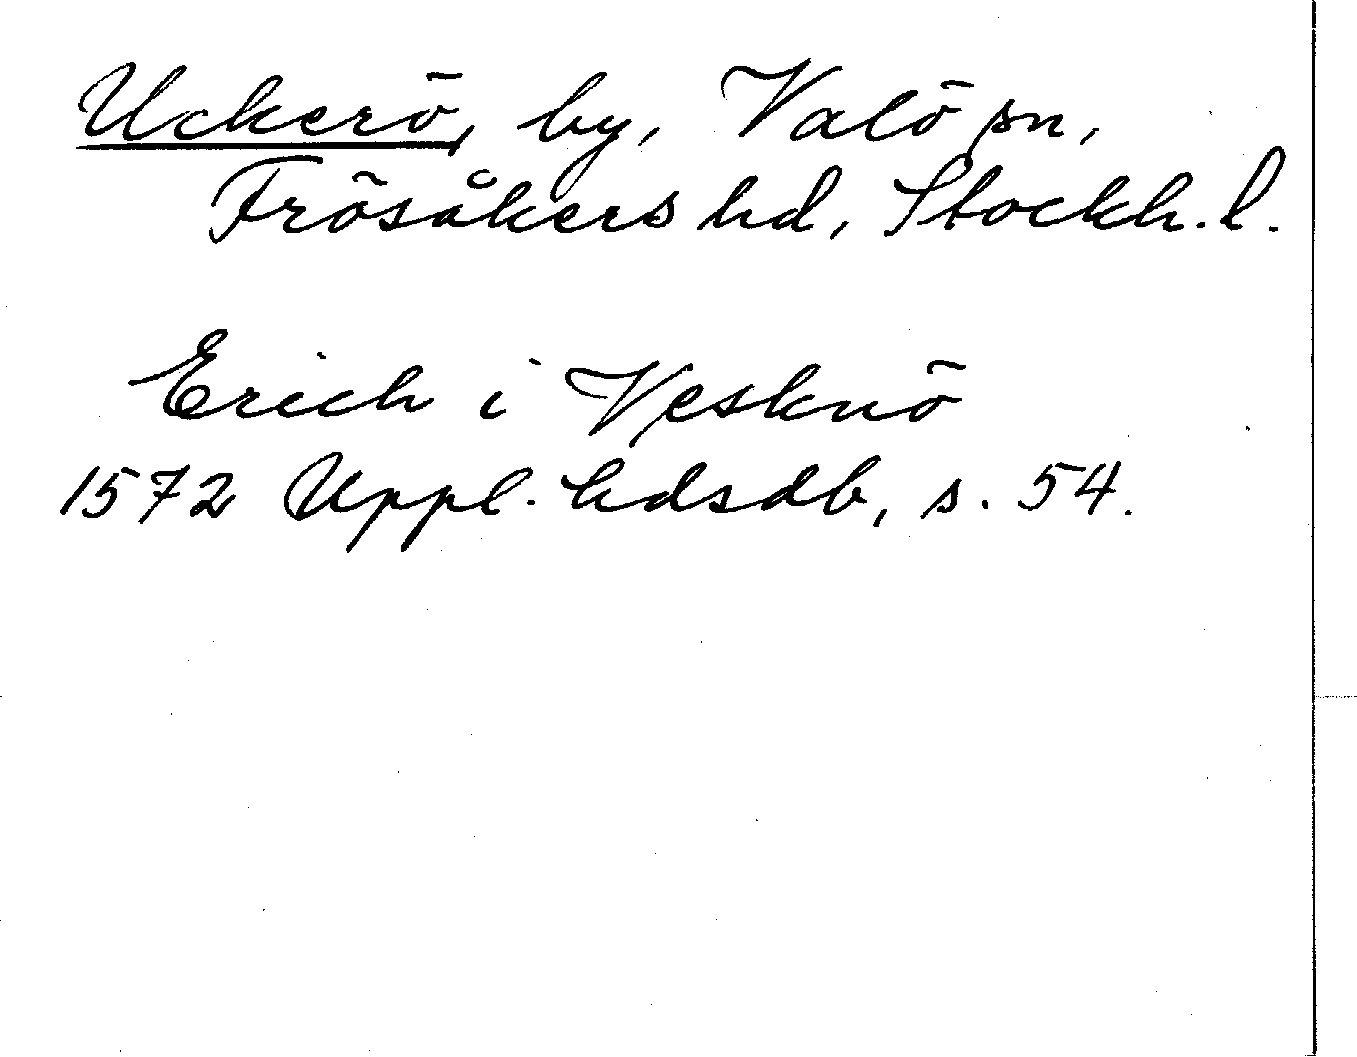 Uckerö, by, Valö sn,
Frösåkers hd, Stockh. l.
Erich i Vesknö
1572 Uppl. hdsdb, s. 54.